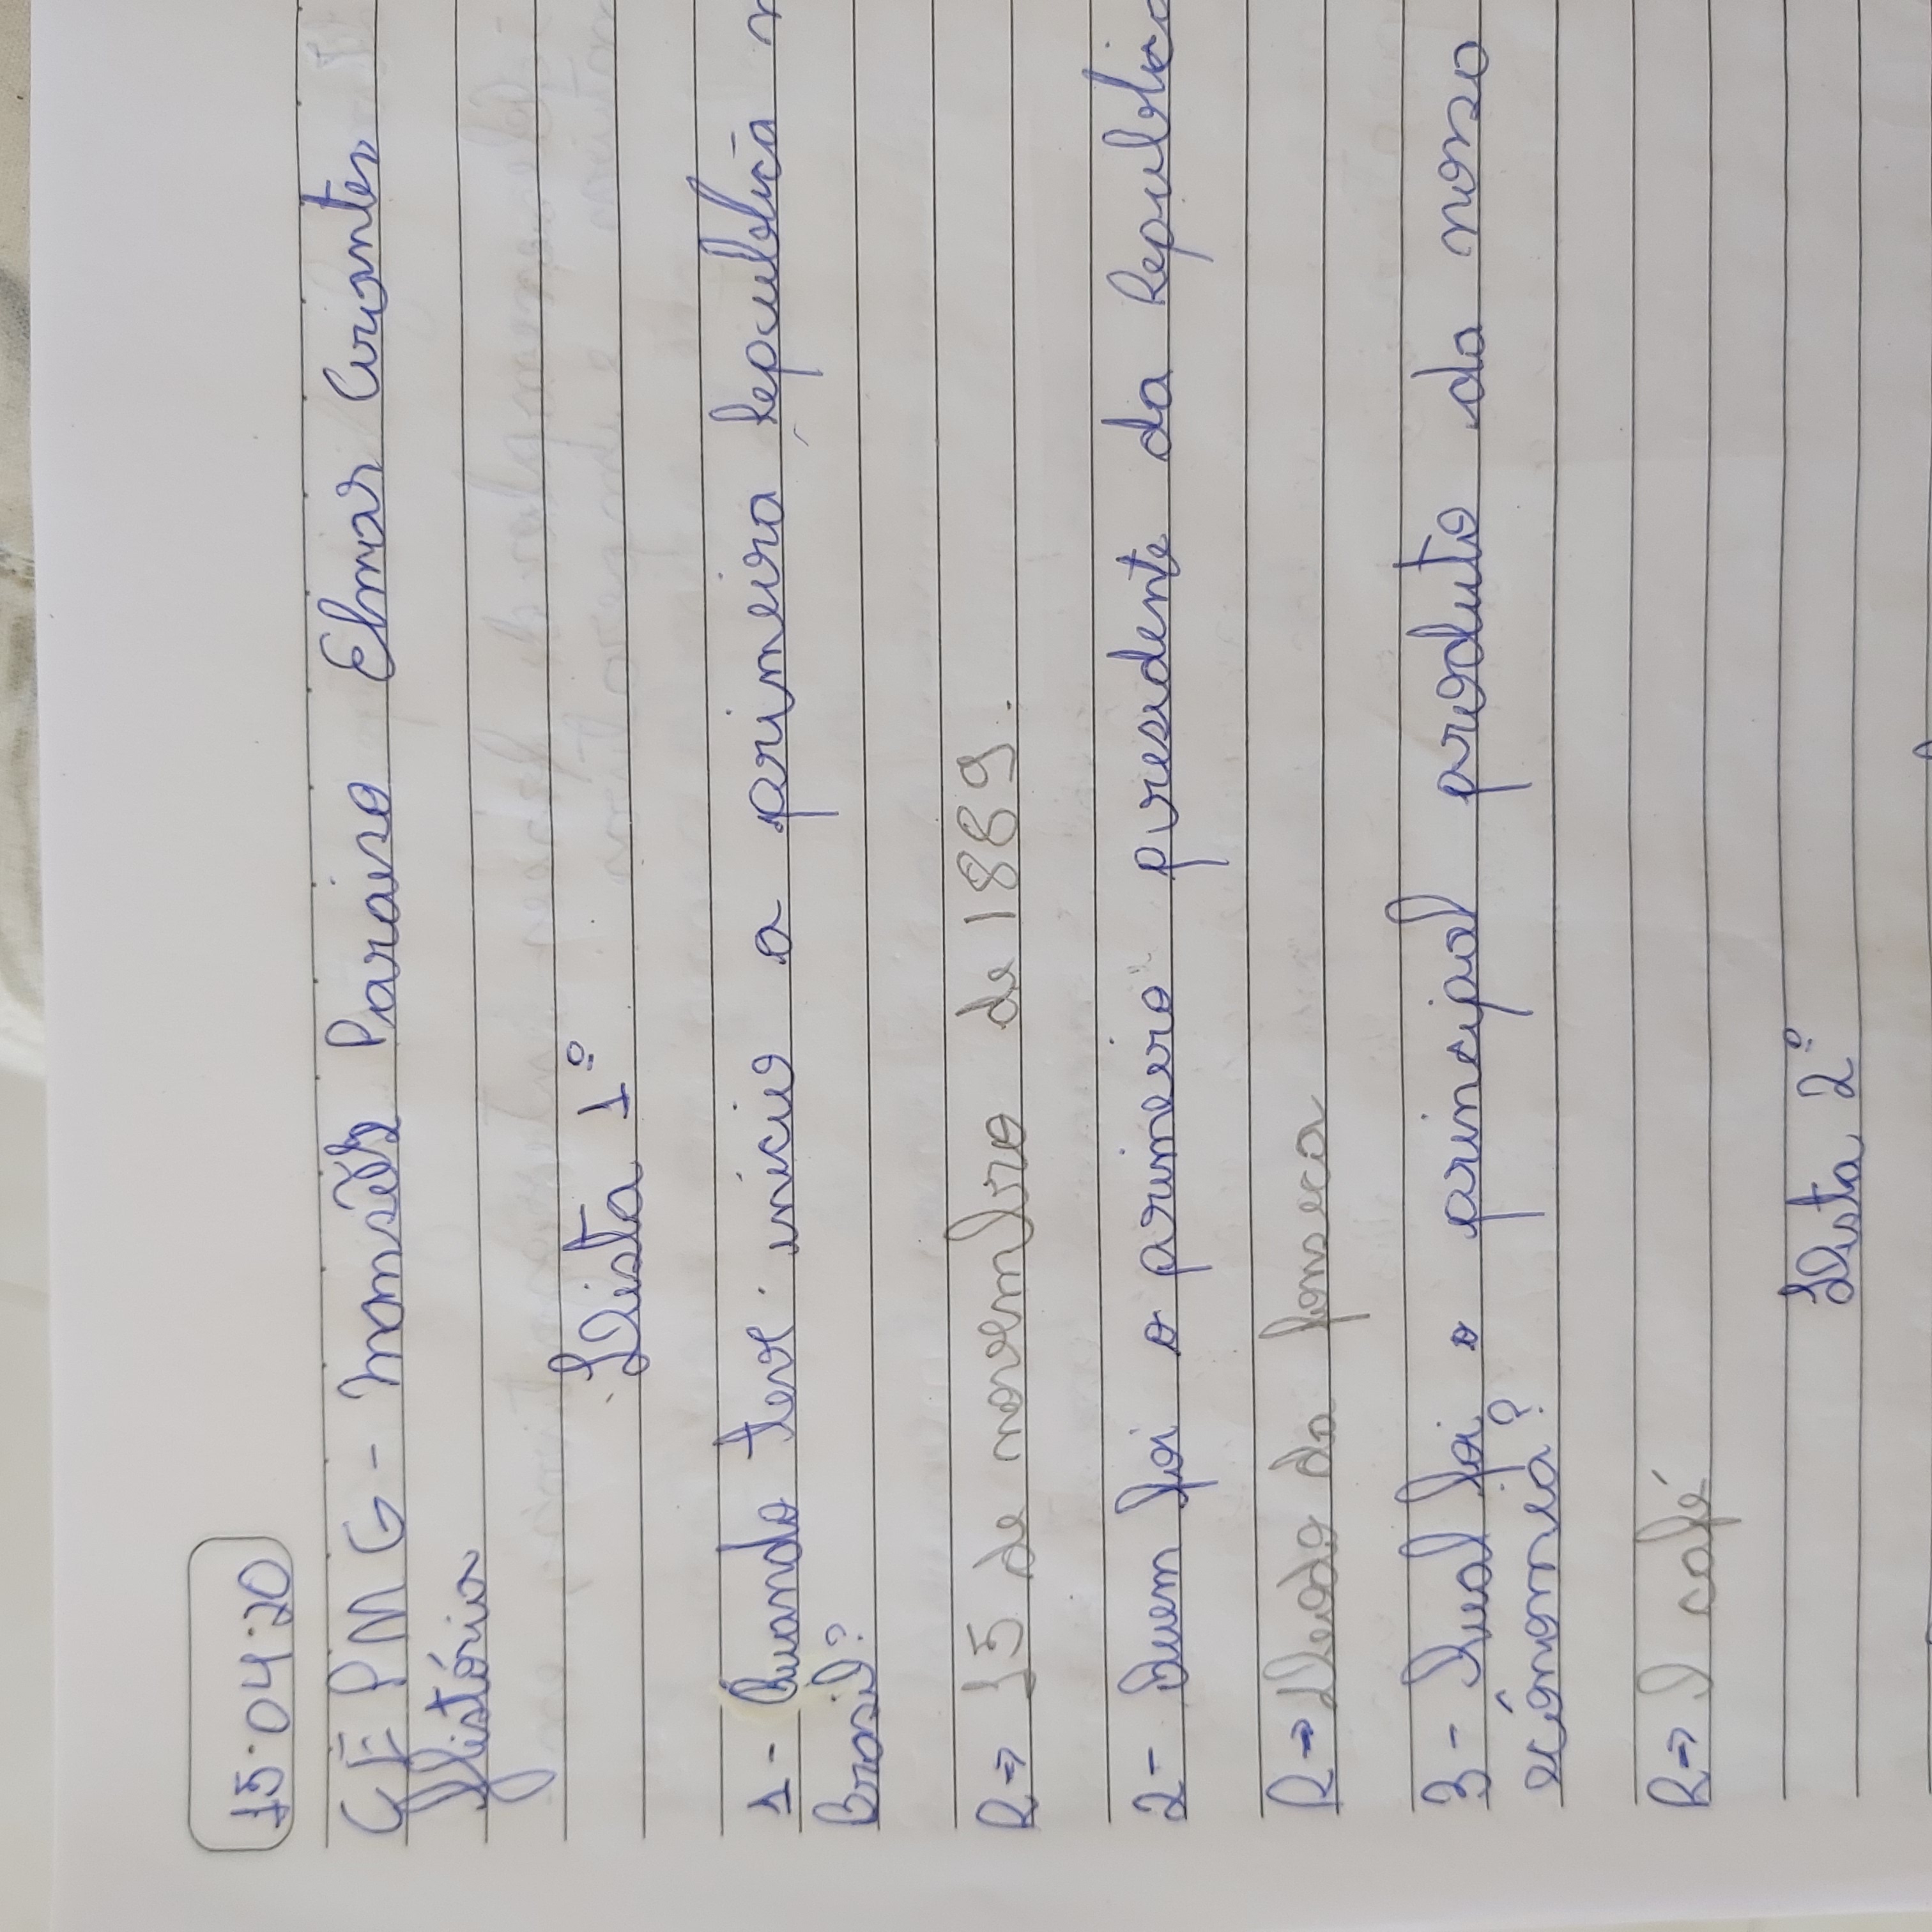 15.04.20
CEPMG - Mansões Paraiso Elmar Arantes
História
Lista 1º
1- Quando teve inicio a primeira Republica
Brasil?
R→ 15 de novembro de 1889.
2- Quem foi o primeiro presidente da Republica
R→ Deodo da fonseca
3- Qual foi o principal produto da nosso
ecônomia?
R→ O café
Lista 2º